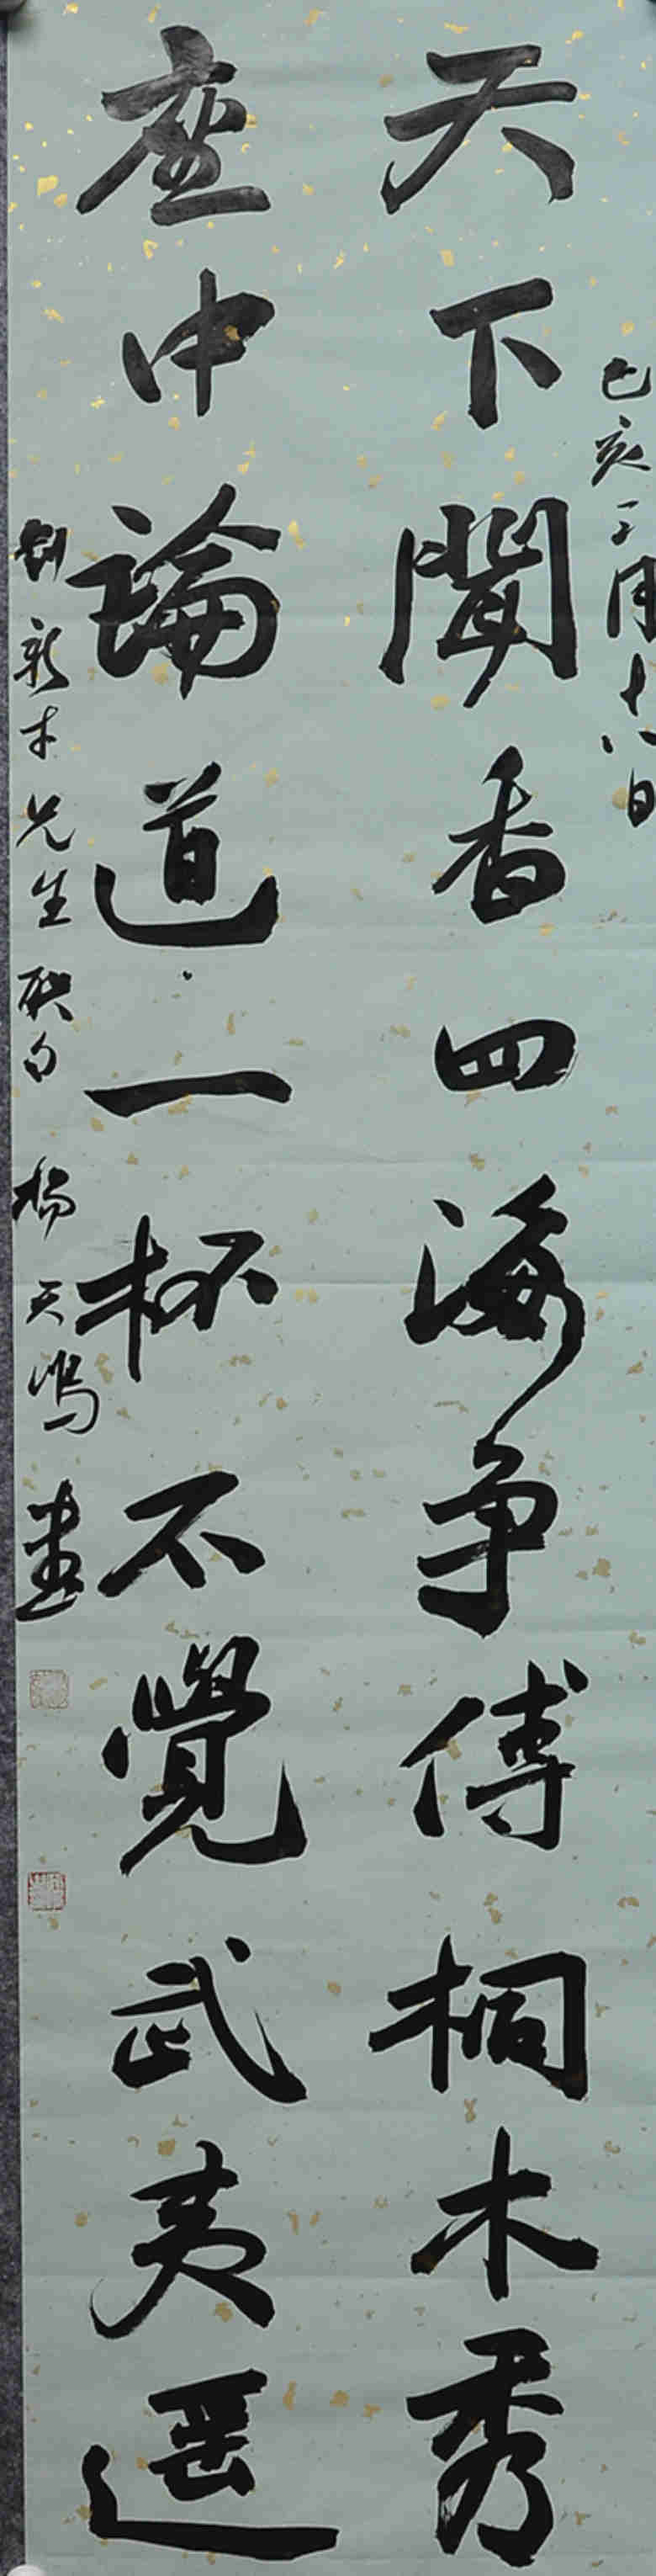 己亥二月十八日
天下闻香四海争傳桐木秀
座中論道一杯不覺武夷遥
刘新才先生联句 杨天鸣書